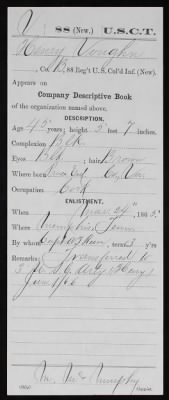 V 88 (New.) U.S.C.T.
Henry Vaughn
, Co. B, 88 Reg't U. S. Col'd Inf. (New).
Appears on
Company Descriptive Book
of the organization named above.
DESCRIPTION.
Age 45 years; height 5 feet 7 inches.
Complexion Blk
Eyes Blk ; hair Brown
Where born Va.
Occupation Cook
ENLISTMENT.
When 24", 1865.
Where Memphis Tenn
By whom Capt ; term 3 y'rs
Remarks: Transferred to
3 U.S.C. Arty Heavy
Murphy